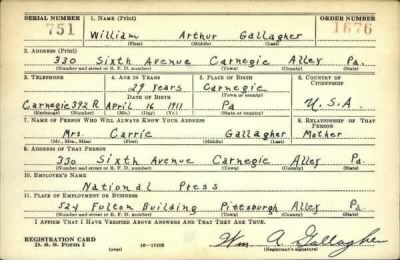 SERIAL NUMBER 1. NAME (Print) ORDER NUMBER
751 William Arthur Gallagher 1676
(First) (Middle) (Last)
2. ADDRESS (Print)
330 Sixth Avenue Carnegie Alleg Pa.
(Number and street or R. F. D. number) (Town) (County) (State)
3. TELEPHONE 4. AGE IN YEARS 5. PLACE OF BIRTH 6. COUNTRY OF CITIZENSHIP
29 Years Carnegie
DATE OF BIRTH (Town or county)
Carnegie 392 R April 16 1911 Pa U.S.A.
(Exchange) (Number) (Mo.) (Day) (Yr.) (State or country)
7. NAME OF PERSON WHO WILL ALWAYS KNOW YOUR ADDRESS 8. RELATIONSHIP OF THAT PERSON
Mrs. Carrie Gallagher Mother
(Mr., Mrs., Miss) (First) (Middle) (Last)
9. ADDRESS OF THAT PERSON
330 Sixth Avenue Carnegie Alleg Pa.
(Number and street or R. F. D. number) (Town) (County) (State)
10. EMPLOYER'S NAME
National Press
11. PLACE OF EMPLOYMENT OR BUSINESS
524 Fulton Building Pittsburgh Alleg Pa
(Number and street or R. F. D. number) (Town) (County) (State)
I AFFIRM THAT I HAVE VERIFIED ABOVE ANSWERS AND THAT THEY ARE TRUE.
REGISTRATION CARD
D. S. S. Form 1 (over) 16-17105 Wm A. Gallagher
(Registrant's signature)